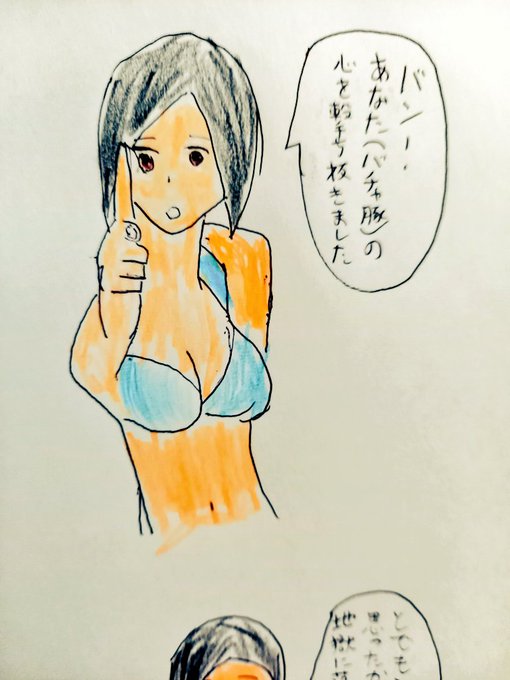 バンー・
あなた(バチャ豚)の
心を撃ち抜きました
とでも
思ったか
地獄に